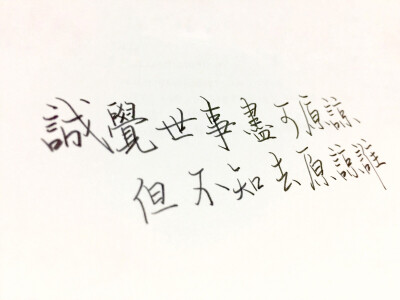 誠覺世事盡可原諒
但不知去原諒誰